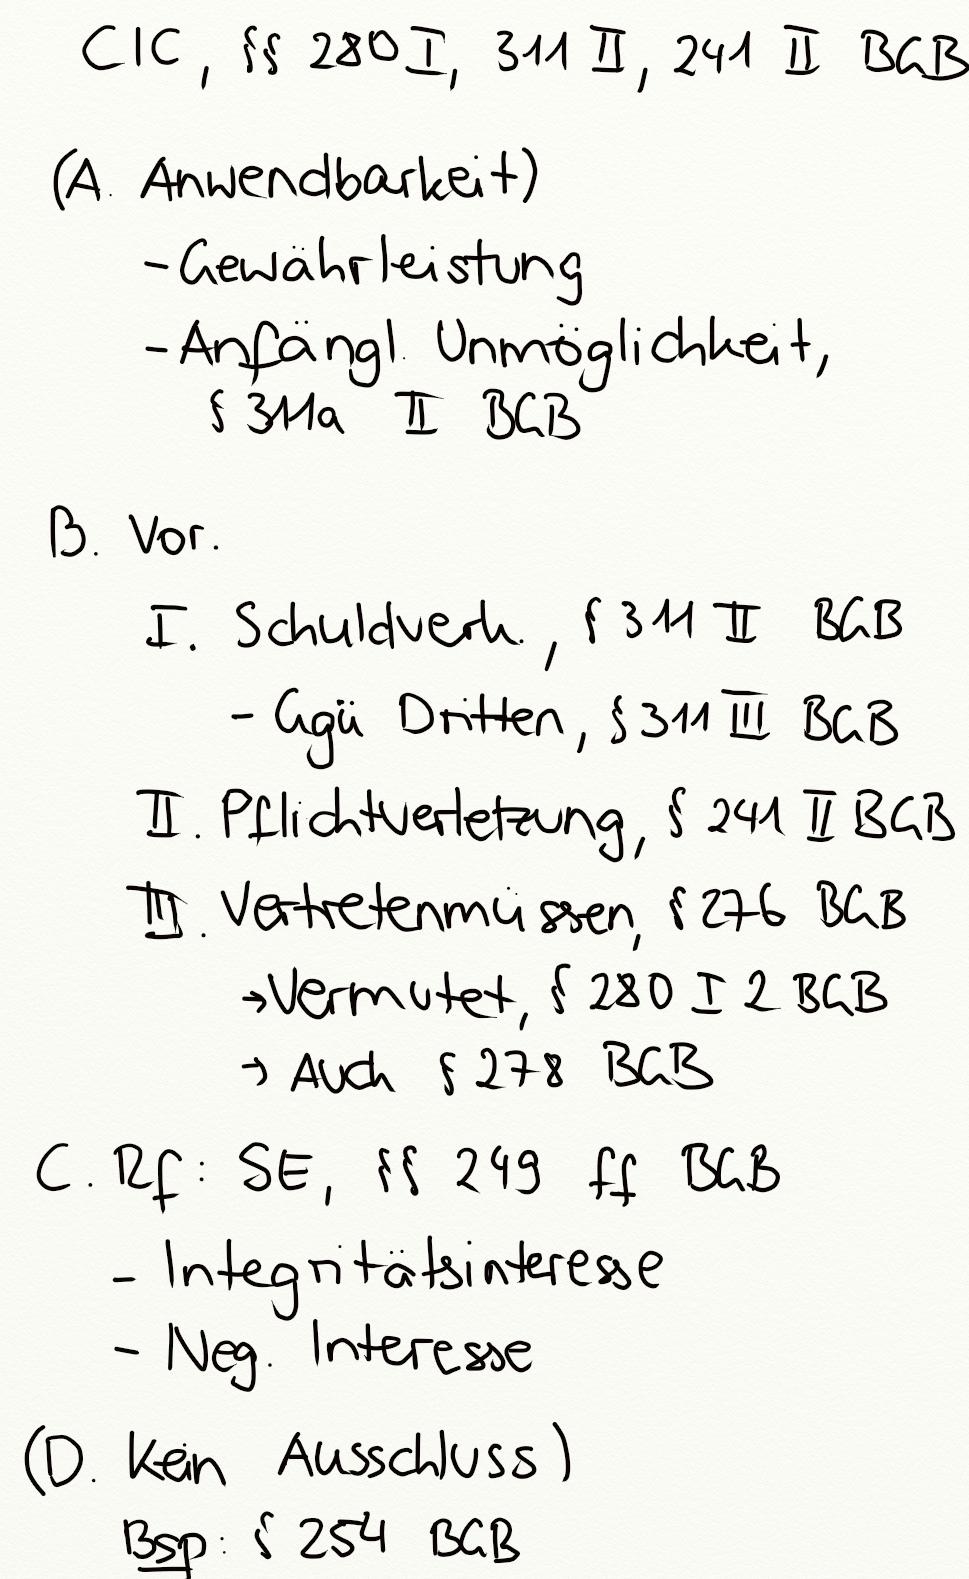 CIC, §§ 280 I, 311 II, 241 II BGB
(A. Anwendbarkeit)
- Gewährleistung
- Anfängl. Unmöglichkeit,
§ 311a II BGB
B. Vor.
I. Schuldverh., § 311 II BGB
- Ggü Dritten, § 311 III BGB
II. Pflichtverletzung, § 241 II BGB
III. Vertretenmüssen, § 276 BGB
→ Vermutet, § 280 I 2 BGB
→ Auch § 278 BGB
C. Rf: SE, §§ 249 ff BGB
- Integritätsinteresse
- Neg. Interesse
(D. Kein Ausschluss)
Bsp: § 254 BGB